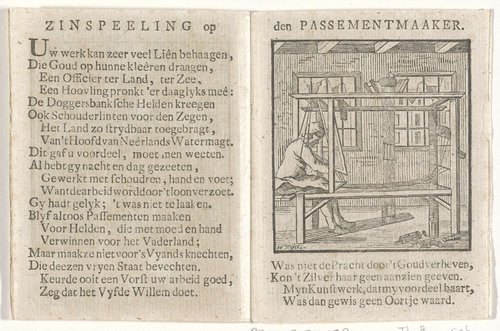 ZINSPEELING op
Uw werk kan zeer veel Liên behaagen,
Die Goud op hunne kleêren draagen,
Een Officier ter Land, ter Zee,
Een Hoovling pronkt 'er daaglyks meê:
De Doggersbanksche Helden kreegen
Ook Schouderlinten voor den Zegen,
Het Land zo strydbaar toegebragt,
Van't Hoofd van Neêrlands Watermagt.
Dit gaf u voordeel, moet men weeten.
Al hebt gy nacht en dag gezeeten,
Gewerkt met schoudren, hand en voet;
Want de arbeid word door't loon verzoet.
Gy hadt gelyk; 't was niet te laaken.
Blyf altoos Passementen maaken
Voor Helden, die met moed en hand
Verwinnen voor het Vaderland;
Maar maakze niet voor's Vyands knechten,
Die deezen vryen Staat bevechten.
Keurde ooit een Vorst uw arbeid goed,
Zeg dat het Vyfde Willem doet.
den PASSEMENTMAAKER.
Was niet de Pracht door't Goud verheven,
Kon't Zilver haar geen aanzien geeven.
Myn Kunstwerk, dat my voordeel baart,
Was dan gewis geen Oortje waard.